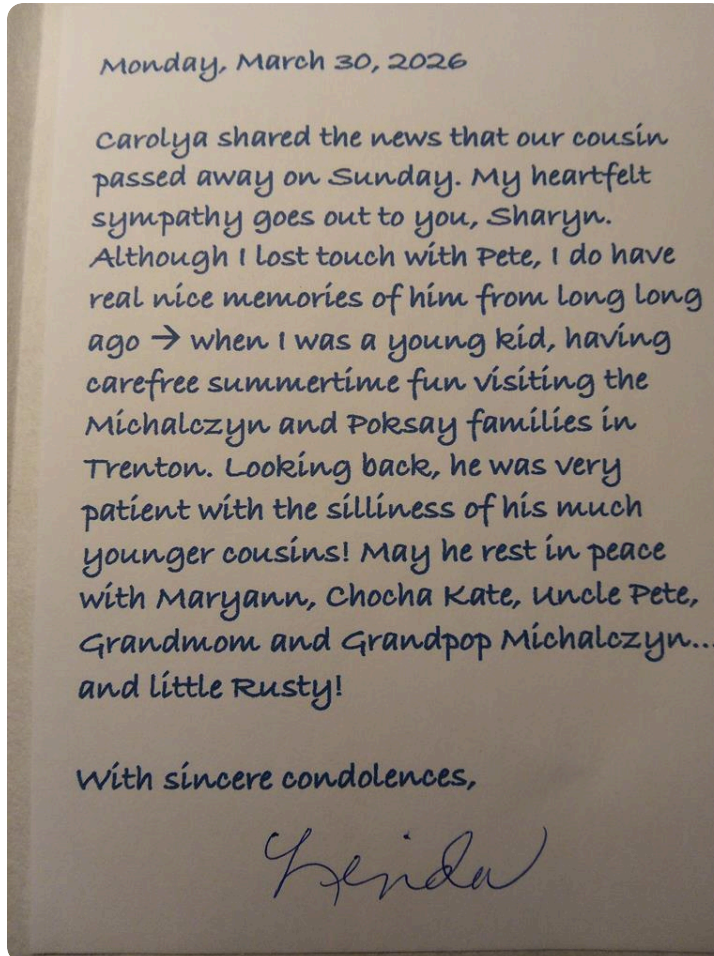 Monday, March 30, 2026
Carolya shared the news that our cousin
passed away on Sunday. My heartfelt
sympathy goes out to you, Sharyn.
Although I lost touch with Pete, I do have
real nice memories of him from long long
ago → when I was a young kid, having
carefree summertime fun visiting the
Michalczyn and Poksay families in
Trenton. Looking back, he was very
patient with the silliness of his much
younger cousins! May he rest in peace
with Maryann, Chocha Kate, Uncle Pete,
Grandmom and Grandpop Michalczyn...
and little Rusty!
With sincere condolences,
Linda